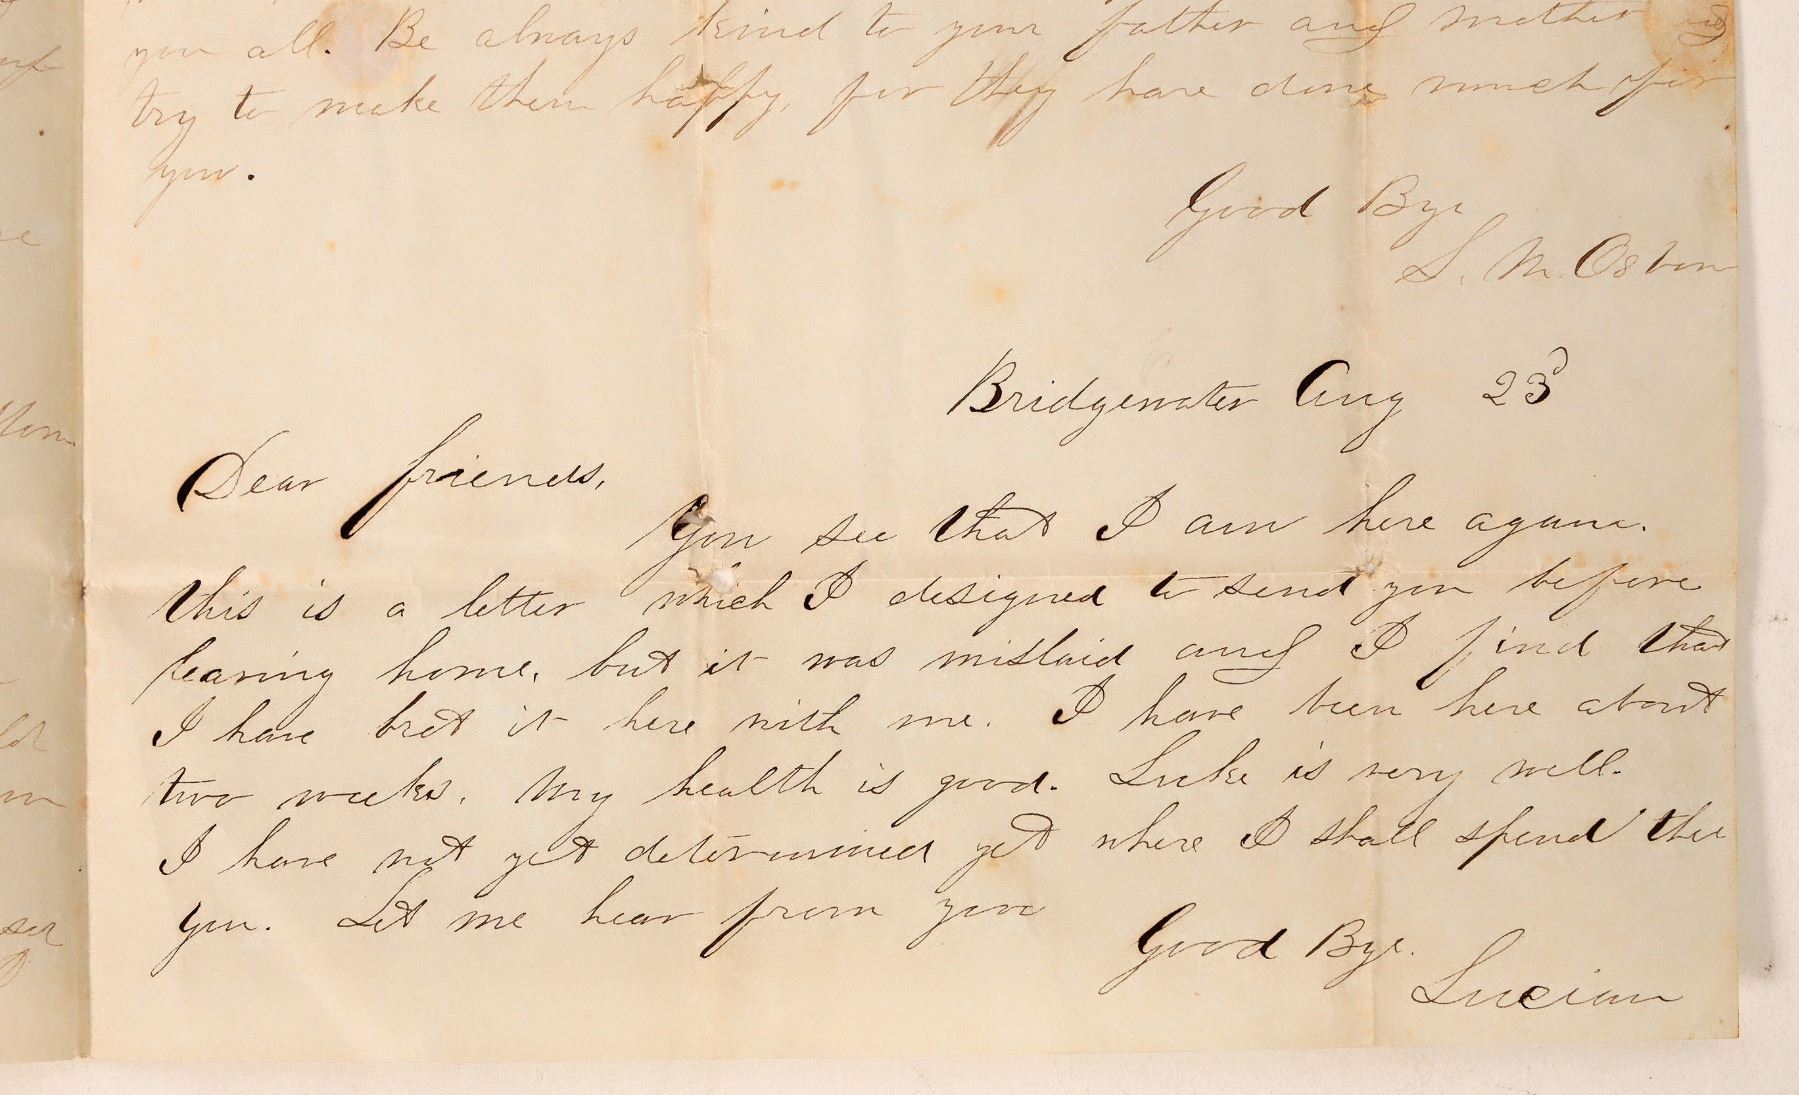 you all. Be always kind to your father and mother and
try to make them happy, for they have done much for
you.
Good Bye
L. M. Osborn
Bridgewater Aug 23d
Dear friends,
You see that I am here again.
this is a letter which I designed to send you before
leaving home, but it was mislaid and I find that
I have brot it here with me. I have been here about
two weeks. My health is good. Luke is very well.
I have not yet determined yet where I shall spend the
yer. Let me hear from you
Good Bye.
Lucian